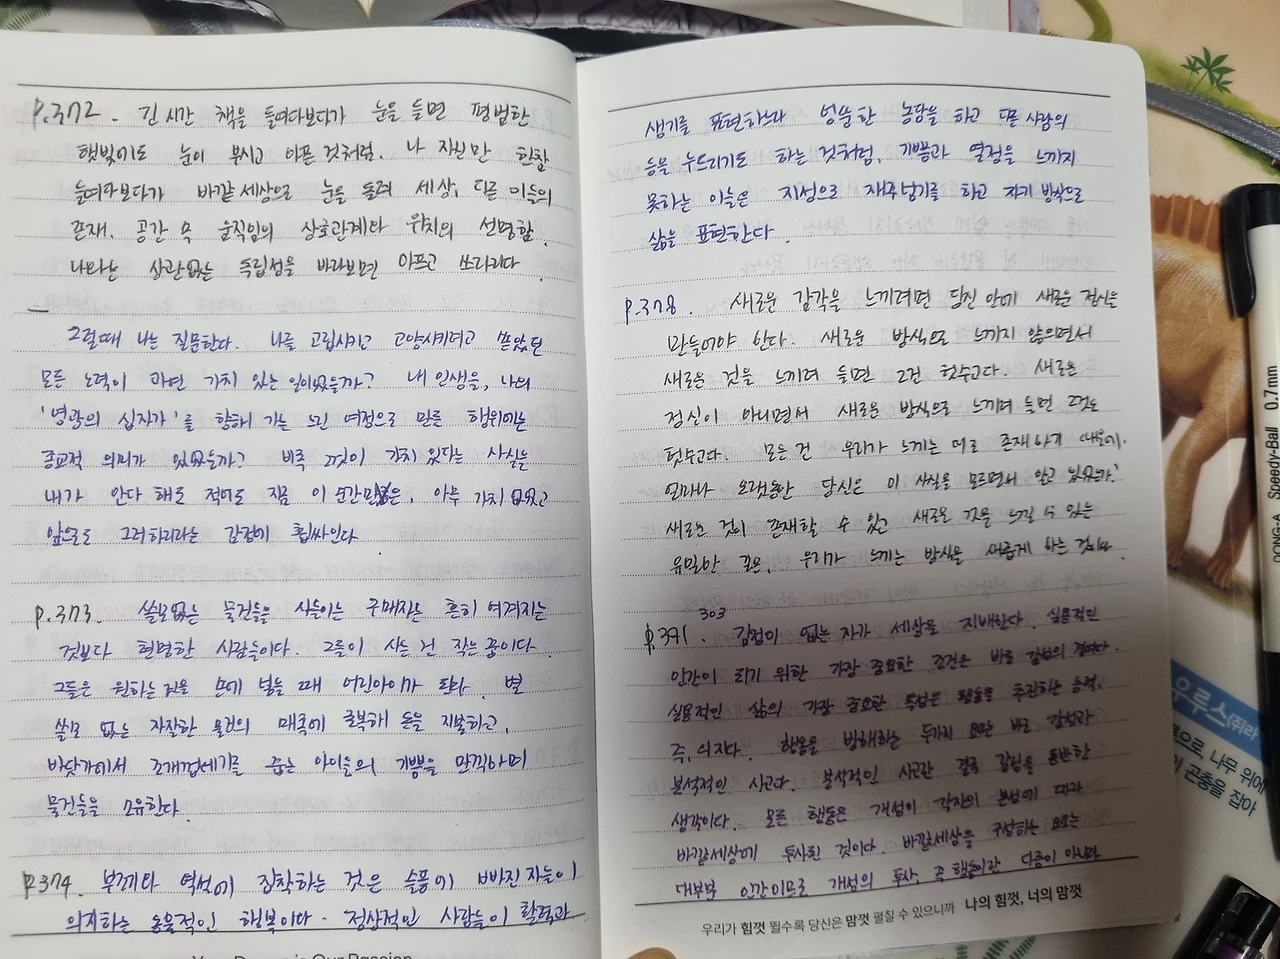 p.372. 긴 시간 책을 들여다보다가 눈을 들면 평범한
햇빛에도 눈이 부시고 아픈 것처럼, 나 자신만 한참
들여다보다가 바깥세상으로 눈을 돌려 세상, 다른 이들의
존재, 공간 속 움직임의 상호관계와 위치의 선명함,
나와는 상관없는 독립성을 바라보면 아프고 쓰라리다.
그럴때 나는 질문한다. 나를 고립시키고 고양시키려고 쏟았던
모든 노력이 과연 가치 있는 일이었을까? 내 인생을, 나의
'영광의 십자가'를 향해 가는 느린 여정으로 만든 행위에는
종교적 의미가 있었을까? 비록 그것이 가치 있다는 사실을
내가 안다 해도 적어도 지금 이 순간만은, 아무 가치 없었고
앞으로도 그러하리라는 감정에 휩싸인다
p.373. 쓸모없는 물건들을 사들이는 구매자는 흔히 여겨지는
것보다 현명한 사람들이다. 그들이 사는 건 작은 꿈이다.
그들은 원하는 걸 손에 넣을 때 어린아이가 된다. 별
쓸모 없는 자잘한 물건의 매혹에 굴복해 돈을 지불하고,
바닷가에서 조개껍데기를 줍는 아이들의 기쁨을 만끽하며
물건들을 소유한다.
p.374. 부조리와 역설에 집착하는 것은 슬픔에 빠진 자들이
의지하는 동물적인 행복이다. 정상적인 사람들이 활력과
생기를 표현하느라 엉뚱한 농담을 하고 다른 사람의
등을 두드리기도 하는 것처럼, 기쁨과 열정을 느끼지
못하는 이들은 지성으로 재주넘기를 하고 자기 방식으로
삶을 표현한다.
p.378. 새로운 감각을 느끼려면 당신 안에 새로운 정신을
만들어야 한다. 새로운 방식으로 느끼지 않으면서
새로운 것을 느끼려 들면 그건 헛수고다. 새로운
정신이 아니면서 새로운 방식으로 느끼려 들면 그것도
헛수고다. 모든 건 우리가 느끼는 대로 존재하기 때문에.
얼마나 오랫동안 당신은 이 사실을 모르면서 알고 있었는가?
새로운 것이 존재할 수 있고 새로운 것을 느낄 수 있는
유일한 길은, 우리가 느끼는 방식을 새롭게 하는 것이다.
303
p.391. 감정이 없는 자가 세상을 지배한다. 실용적인
인간이 되기 위한 가장 중요한 조건은 바로 감성의 결여다.
실용적인 삶의 가장 중요한 덕성은 행동을 추진하는 능력,
즉, 의지다. 행동을 방해하는 두가지 요인은 바로 감성과
분석적인 사고다. 분석적인 사고란 결국 감성을 동반한
생각이다. 모든 행동은 개성이 각자의 본성에 따라
바깥세상에 투사된 것이다. 바깥세상을 구성하는 요소는
대부분 인간이므로 개성의 투사, 곧 행동이란 다름이 아니라
우리가 힘껏 뛸수록 당신은 맘껏 펼칠 수 있으니까 나의 힘껏, 너의 맘껏
Speedy-Ball 0.7mm
DONG-A
우루스
나무 위에
곤충을 잡아